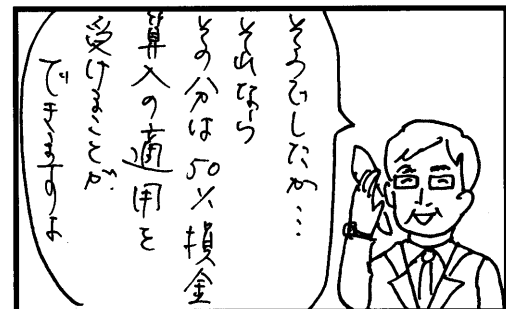 そうでしたか…
それなら
その分は50％損金
算入の適用を
受けることが
できますよ